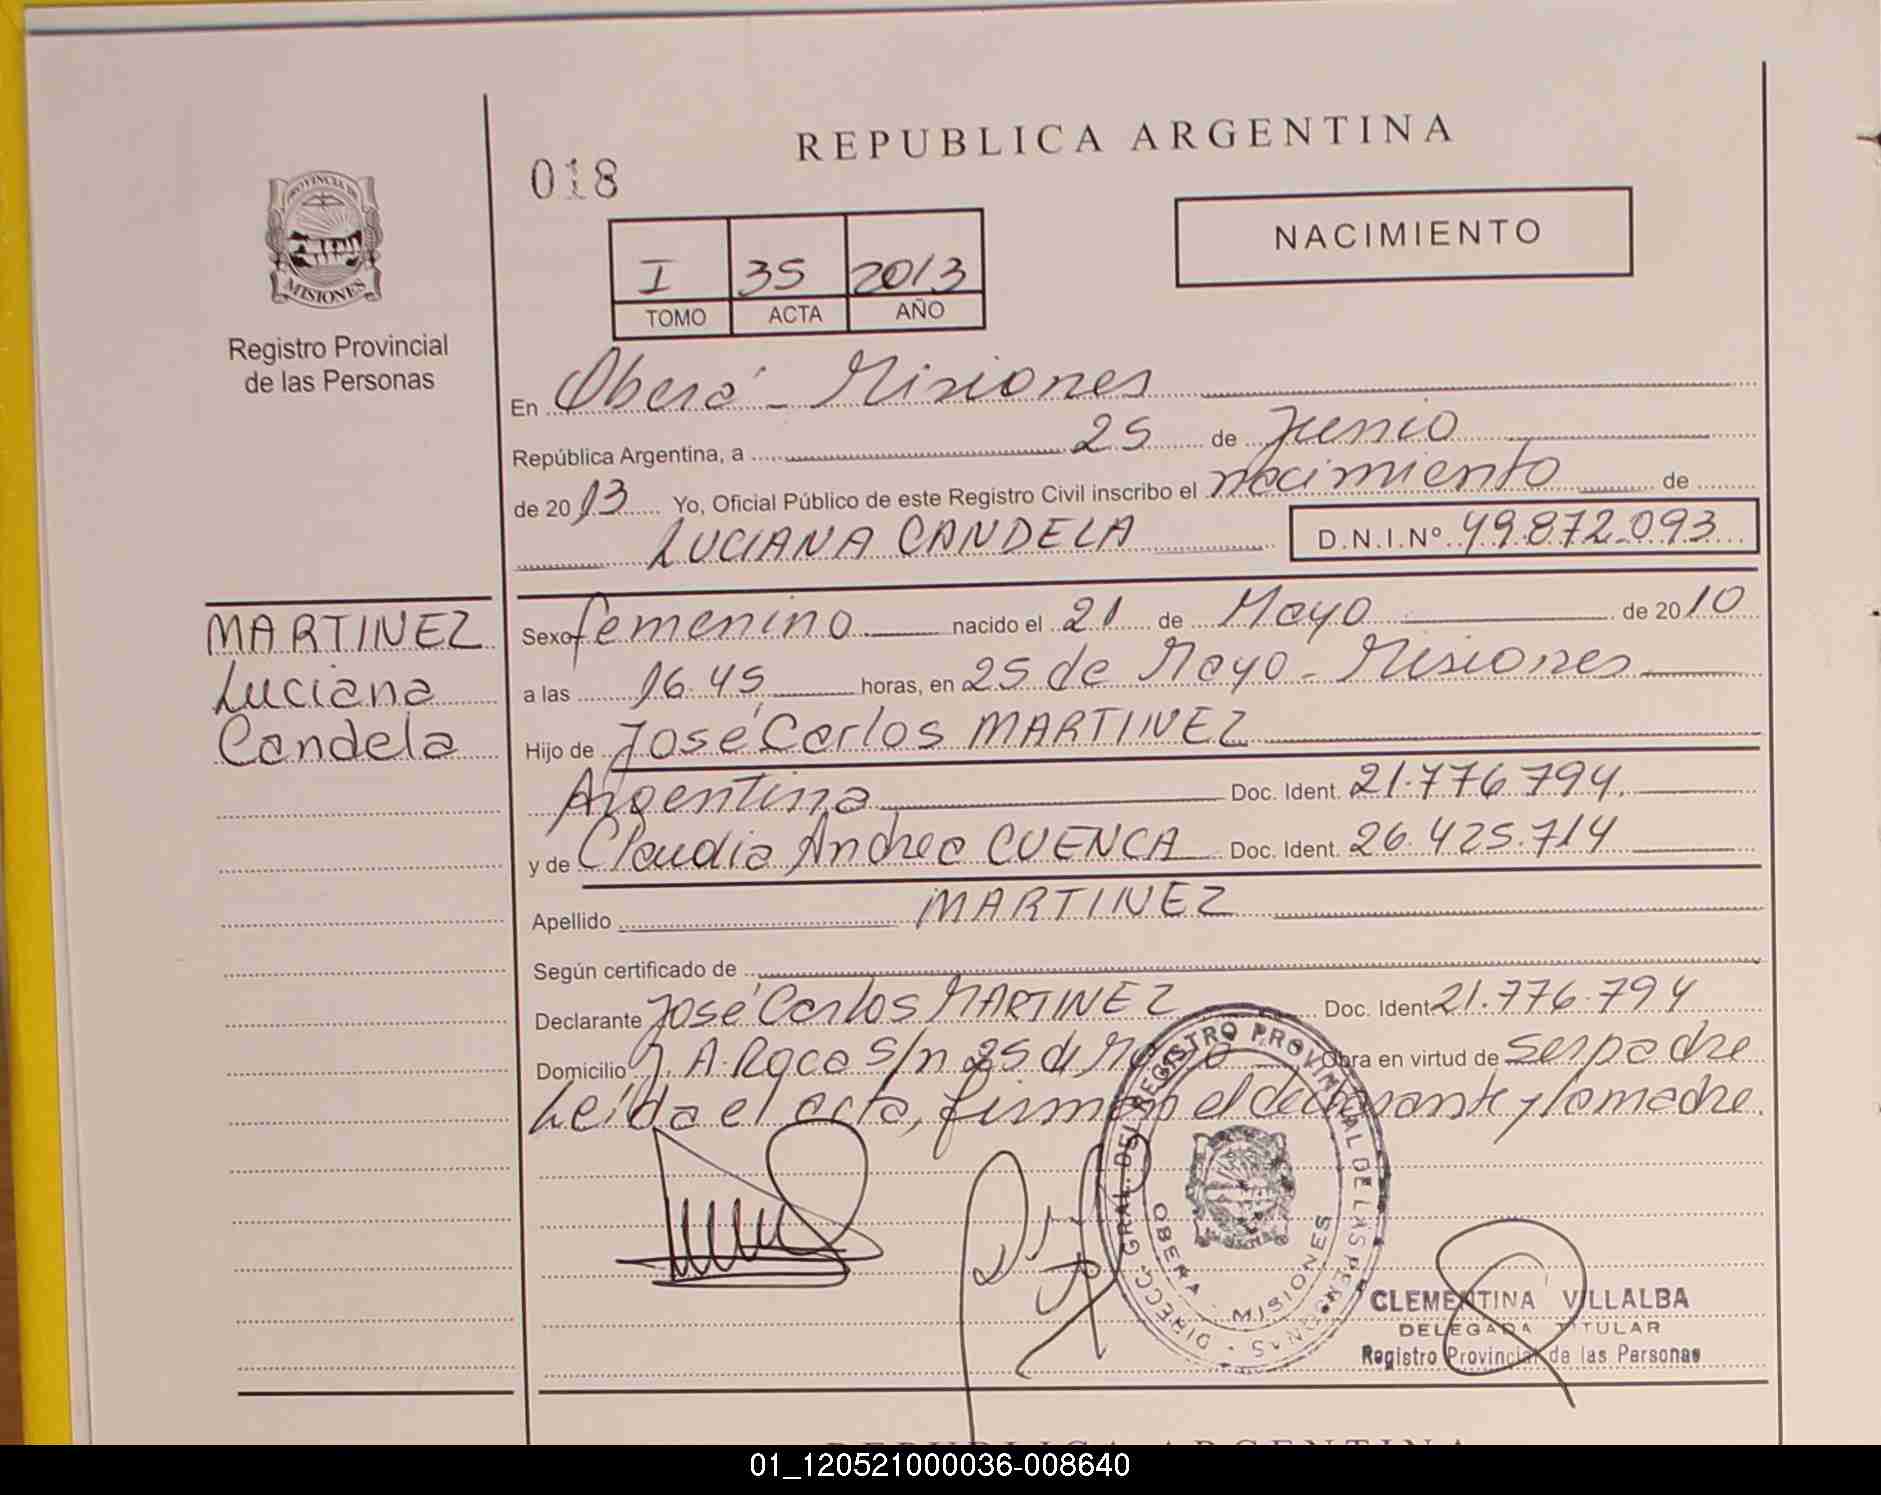 REPUBLICA ARGENTINA
018
NACIMIENTO
PROVINCIA DE
MISIONES
I 35 2013
TOMO ACTA AÑO
Registro Provincial
de las Personas
En Oberá - Misiones
República Argentina, a 25 de Junio
de 2013 Yo, Oficial Público de este Registro Civil inscribo el nacimiento de
LUCIANA CANDELA D.N.I.Nº 49.872.093
MARTINEZ
Luciana
Candela
Sexo femenino nacido el 21 de Mayo de 2010
a las 16.45 horas, en 25 de Mayo - Misiones
Hijo de José Carlos MARTINEZ
Argentina Doc. Ident. 21.776.794
y de Claudia Andrea CUENCA Doc. Ident. 26.425.714
Apellido MARTINEZ
Según certificado de
Declarante José Carlos MARTINEZ Doc. Ident 21.776.794
Domicilio J. A. Roca s/n 25 de Mayo Obra en virtud de ser padre
Leída el acta, firman el declarante y la madre.
DIRECC. GRAL. DEL REGISTRO PROVINCIAL DE LAS PERSONAS
OBERA - MISIONES
CLEMENTINA VILLALBA
DELEGADA TITULAR
Registro Provincial de las Personas
REPUBLICA ARGENTINA
01_120521000036-008640